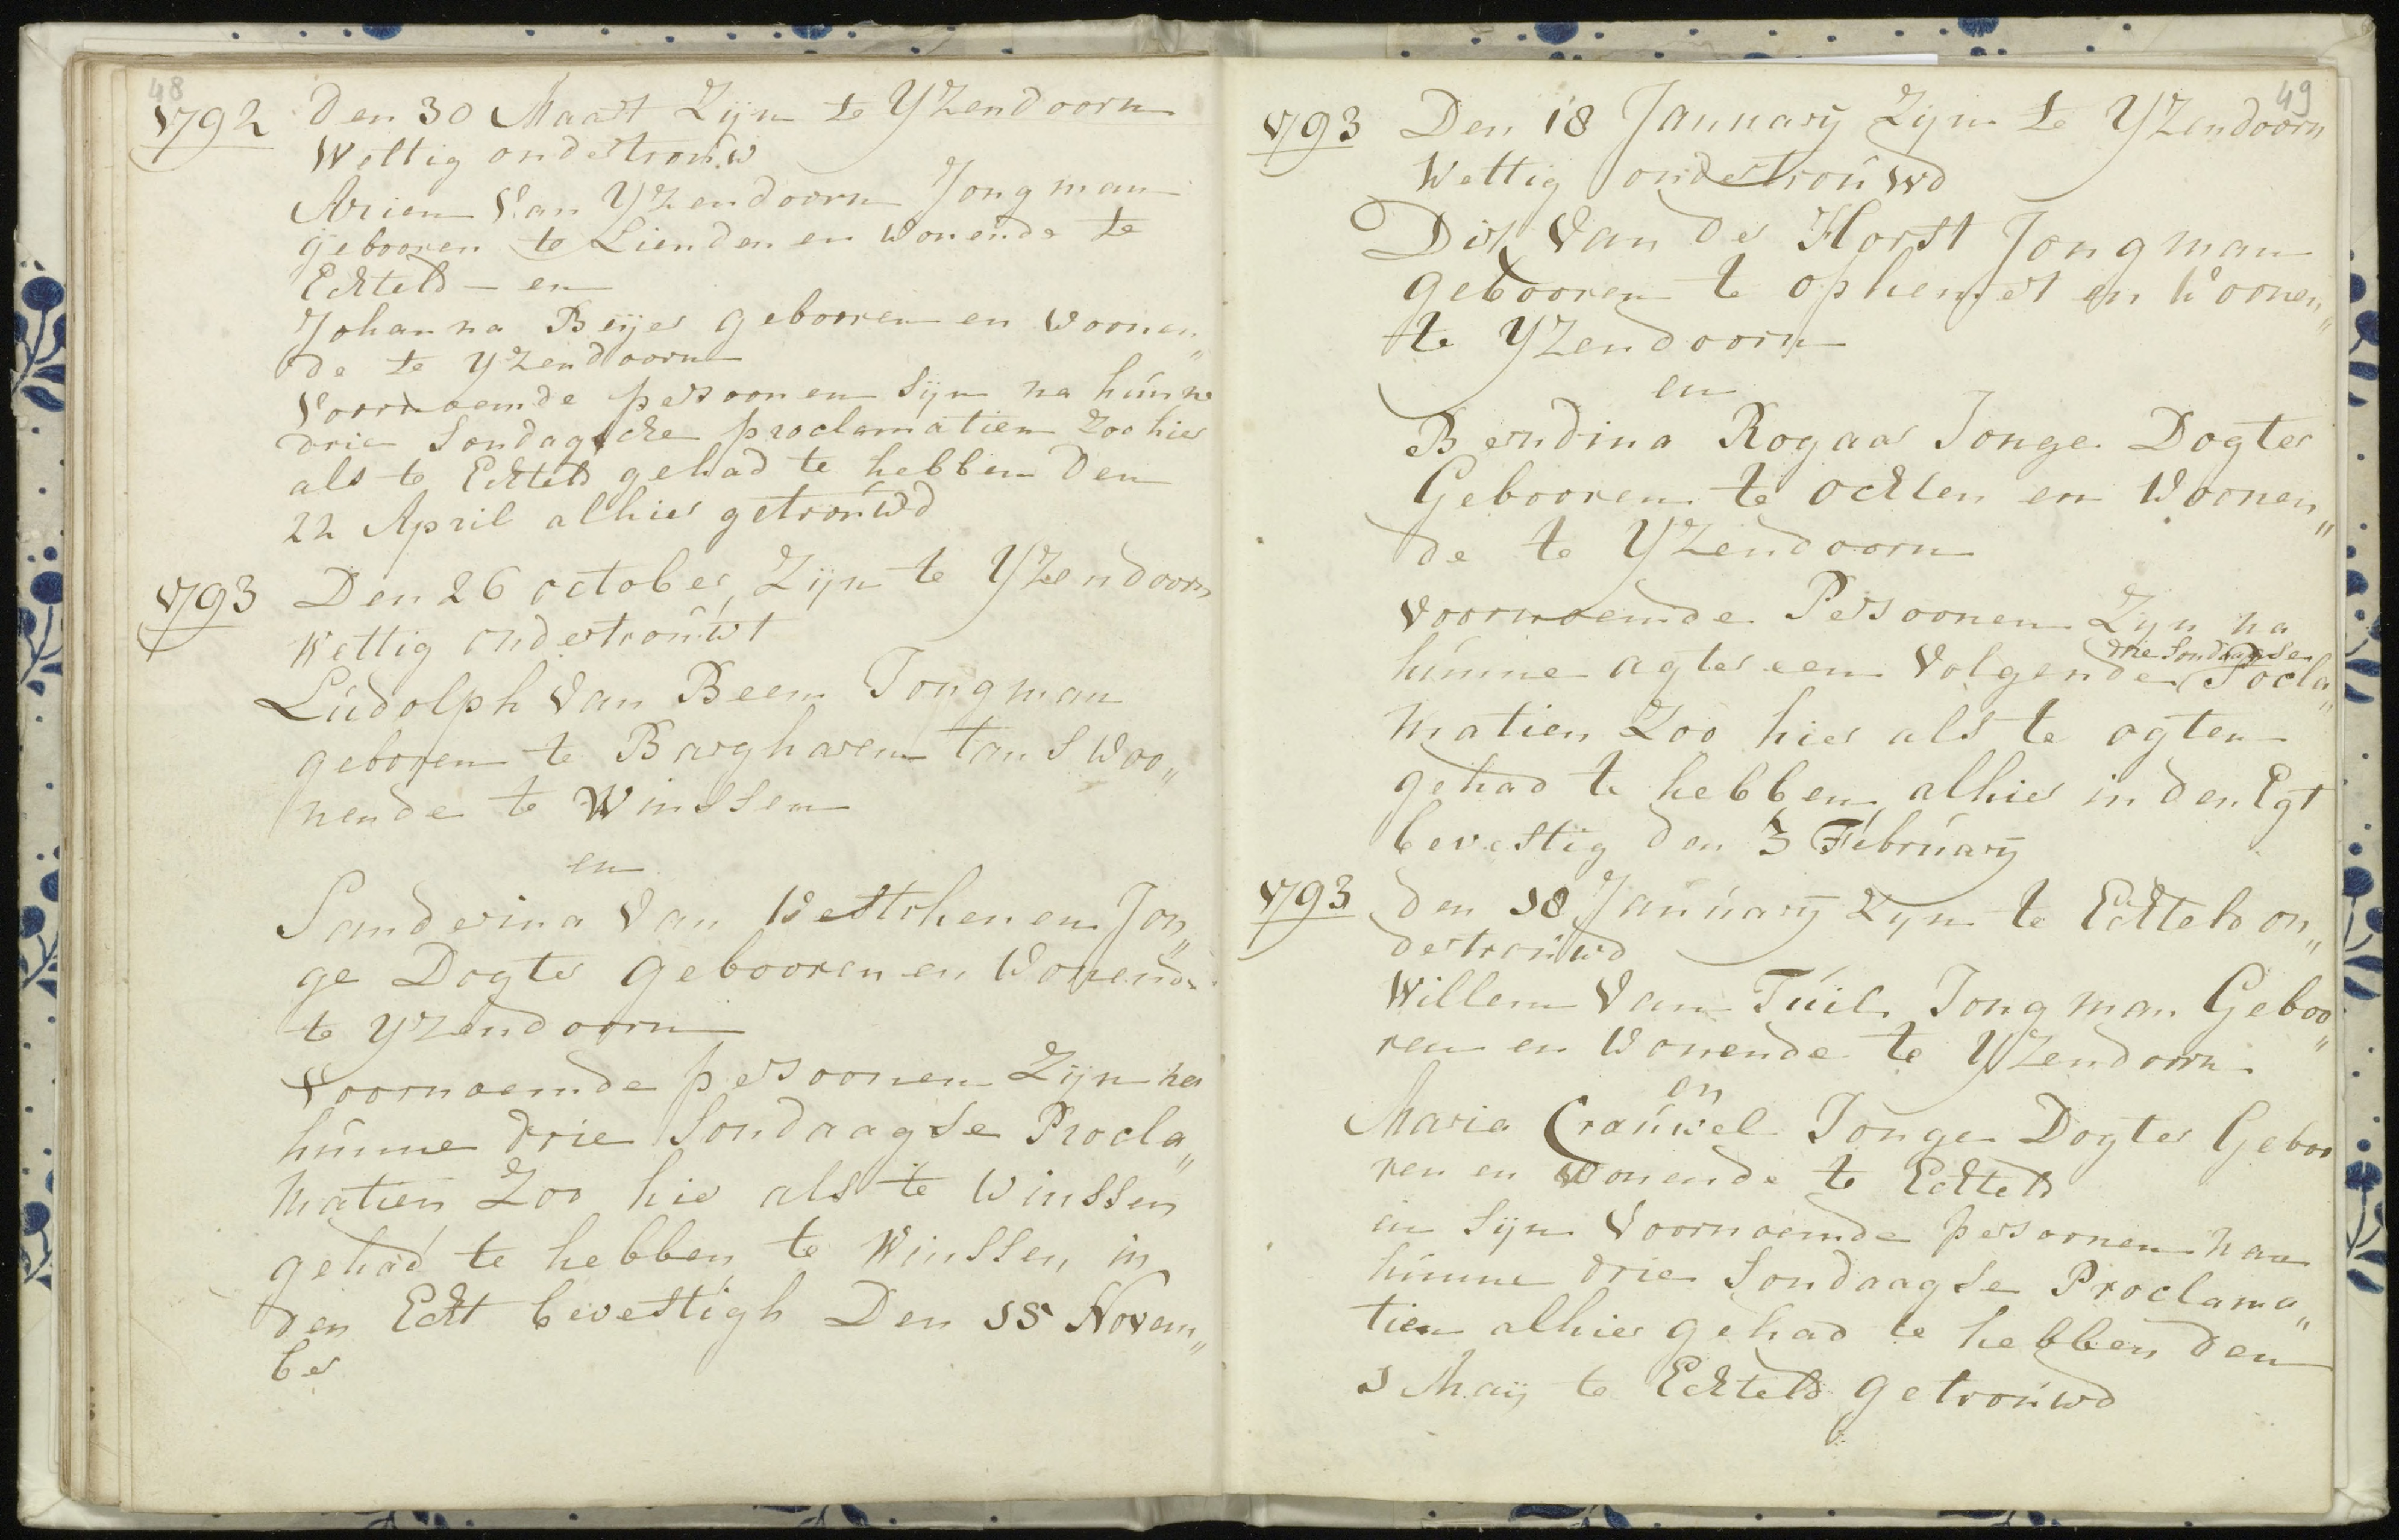 48
1792 Den 30 Maart Zijn te YZendoorn
Wettig ondertrouw
Arien Van YZendoorn Jongman
gebooren te Lienden en Wonende te
Echteld - en
Johanna Beijer gebooren en Woonen„
de te YZendoorn
Voornoemde persoonen Sijn na hunne
drie Sondagsche proclamatien Zoo hier
als te Echteld gehad te hebben Den
22 April alhier getrouwd
1793 Den 26 october Zijn te YZendoorn
Wettig ondertrouwt
Ludolph Van Beem Jongman
geboren te Bargharen tans Woo„
nende te Winssen
en
Sanderina Van Westrhenen Jon„
ge Dogter Gebooren en Wonende
te YZendoorn
Voornoemde persoonen Zijn na
hunne drie Sondaagse Procla„
matien Zoo hier als te Winssen
gehad te hebben te Winssen in
den Echt bevestigh Den 15 Novem„
ber
49
1793 Den 18 January Zijn te YZendoorn
Wettig ondertrouwd
Dirk Van der Horst Jongman
gebooren te ophemert en Woonen„
te YZendoorn
en
Berndina Rogaar Jonge Dogter
Gebooren te ochten en Woonen„
de te YZendoorn
Voornoemde Persoonen Zijn na
drie Sondaagse
hunne agter een Volgende Procla„
matien Zoo hier als te ogten
gehad te hebben alhier in den Egt
bevestig den 3 February
1793 Den 18 January Zyn te Echteld on„
dertrouwd
Willem Van Tuil Jongman Geboo„
ren en Wonende te YZendoorn
en
Maria Crauwel Jonge Dogter Geboo
ren en Wonende te Echteld
en Sijn Voornoemde persoonen naa
hunne drie Sondaagse Proclama„
tien alhier gehad te hebben den
1 Maij te Echteld getrouwd